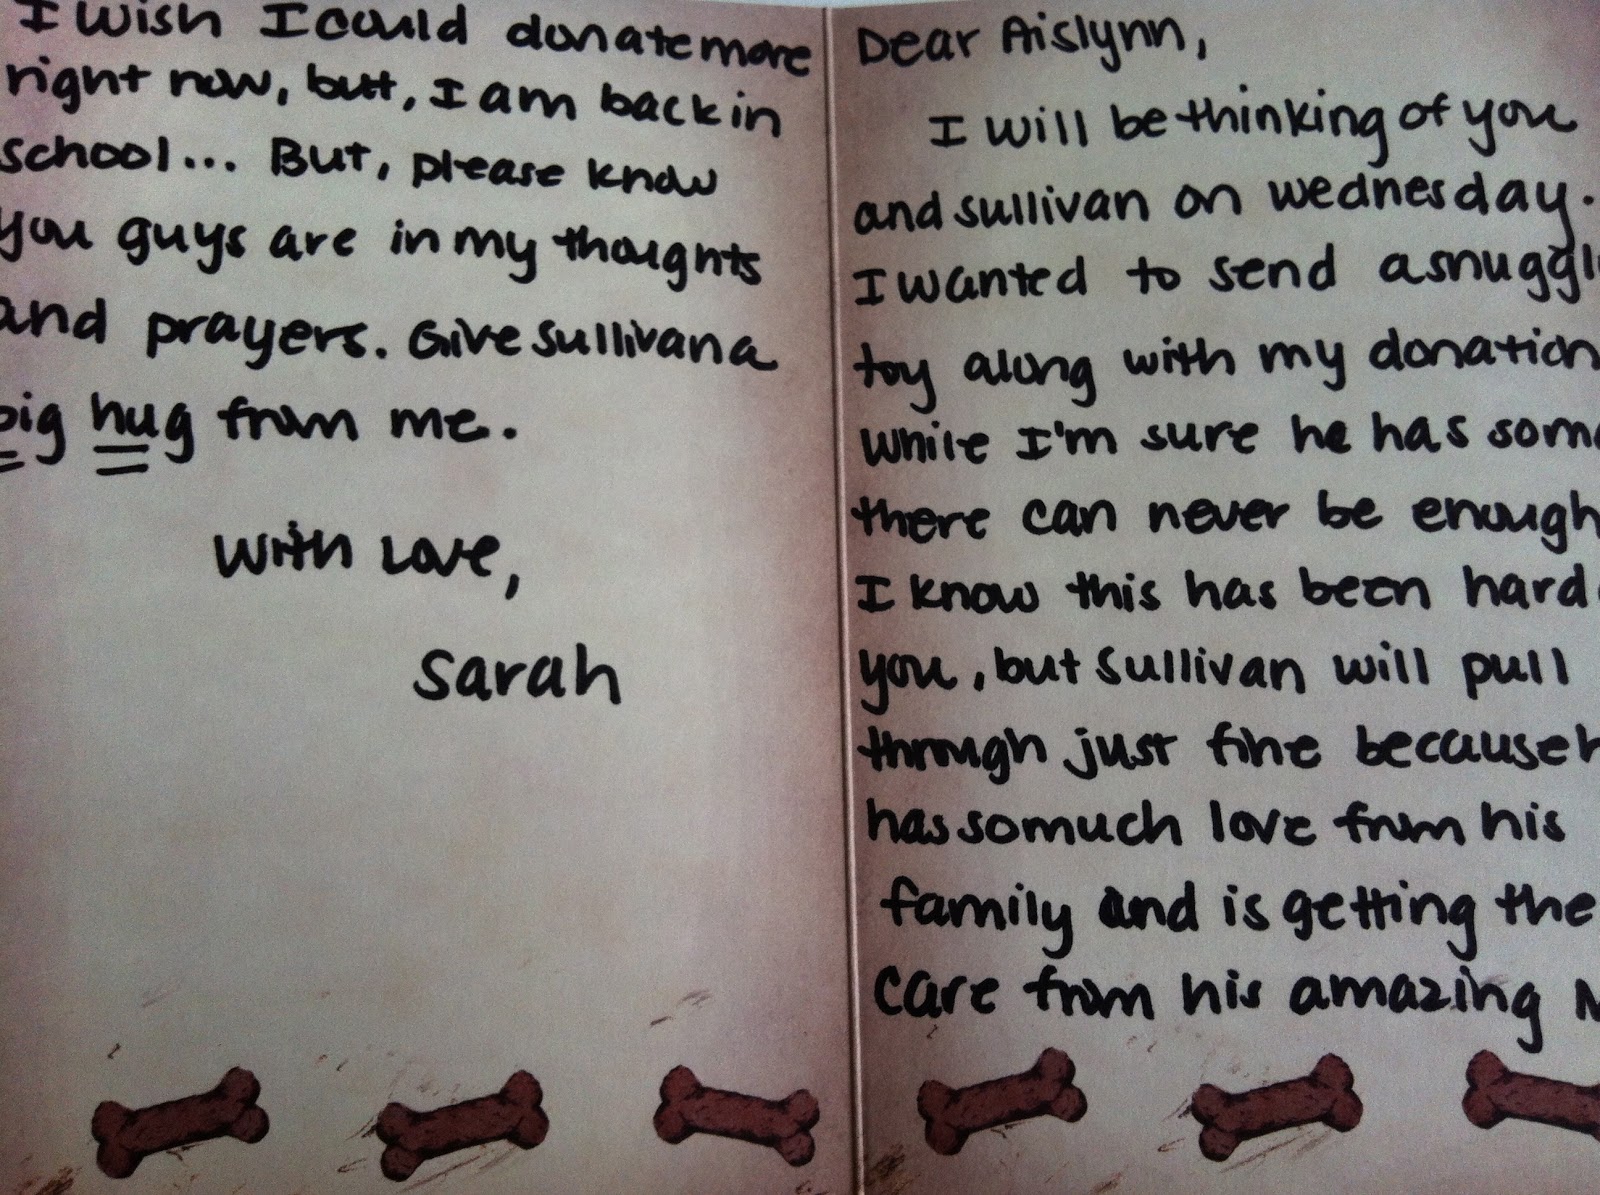 Dear Aislynn,
I will be thinking of you
and Sullivan on Wednesday.
I wanted to send a snuggl
toy along with my donation
While I'm sure he has som
there can never be enough
I know this has been hard
you, but Sullivan will pull
through just fine because h
has so much love from his
family and is getting the
care from his amazing
I wish I could donate more
right now, but, I am back in
school... But, please know
you guys are in my thoughts
and prayers. Give Sullivan a
big hug from me.
With Love,
Sarah